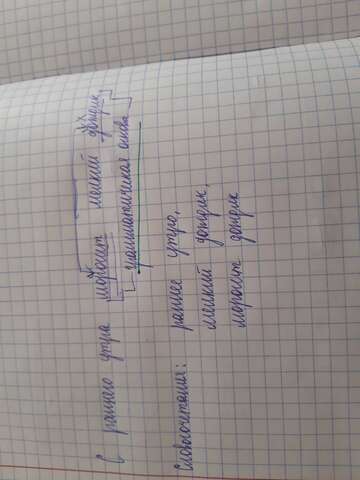 С раннего утра моросит мелкий дождик
грамматическая основа
Словосочетания: раннее утро,
мелкий дождик,
моросит дождик